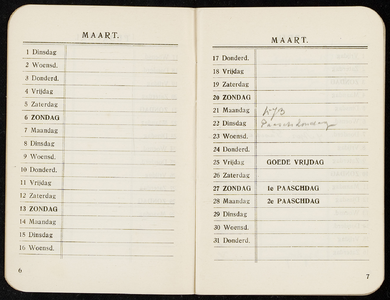 MAART.
1 Dinsdag
2 Woensd.
3 Donderd.
4 Vrijdag
5 Zaterdag
6 ZONDAG
7 Maandag
8 Dinsdag
9 Woensd.
10 Donderd.
11 Vrijdag
12 Zaterdag
13 ZONDAG
14 Maandag
15 Dinsdag
16 Woensd.
6
MAART.
17 Donderd.
18 Vrijdag
19 Zaterdag
20 ZONDAG
21 Maandag
22 Dinsdag
23 Woensd.
24 Donderd.
25 Vrijdag GOEDE VRIJDAG
26 Zaterdag
27 ZONDAG 1e PAASCHDAG
28 Maandag 2e PAASCHDAG
29 Dinsdag
30 Woensd.
31 Donderd.
7